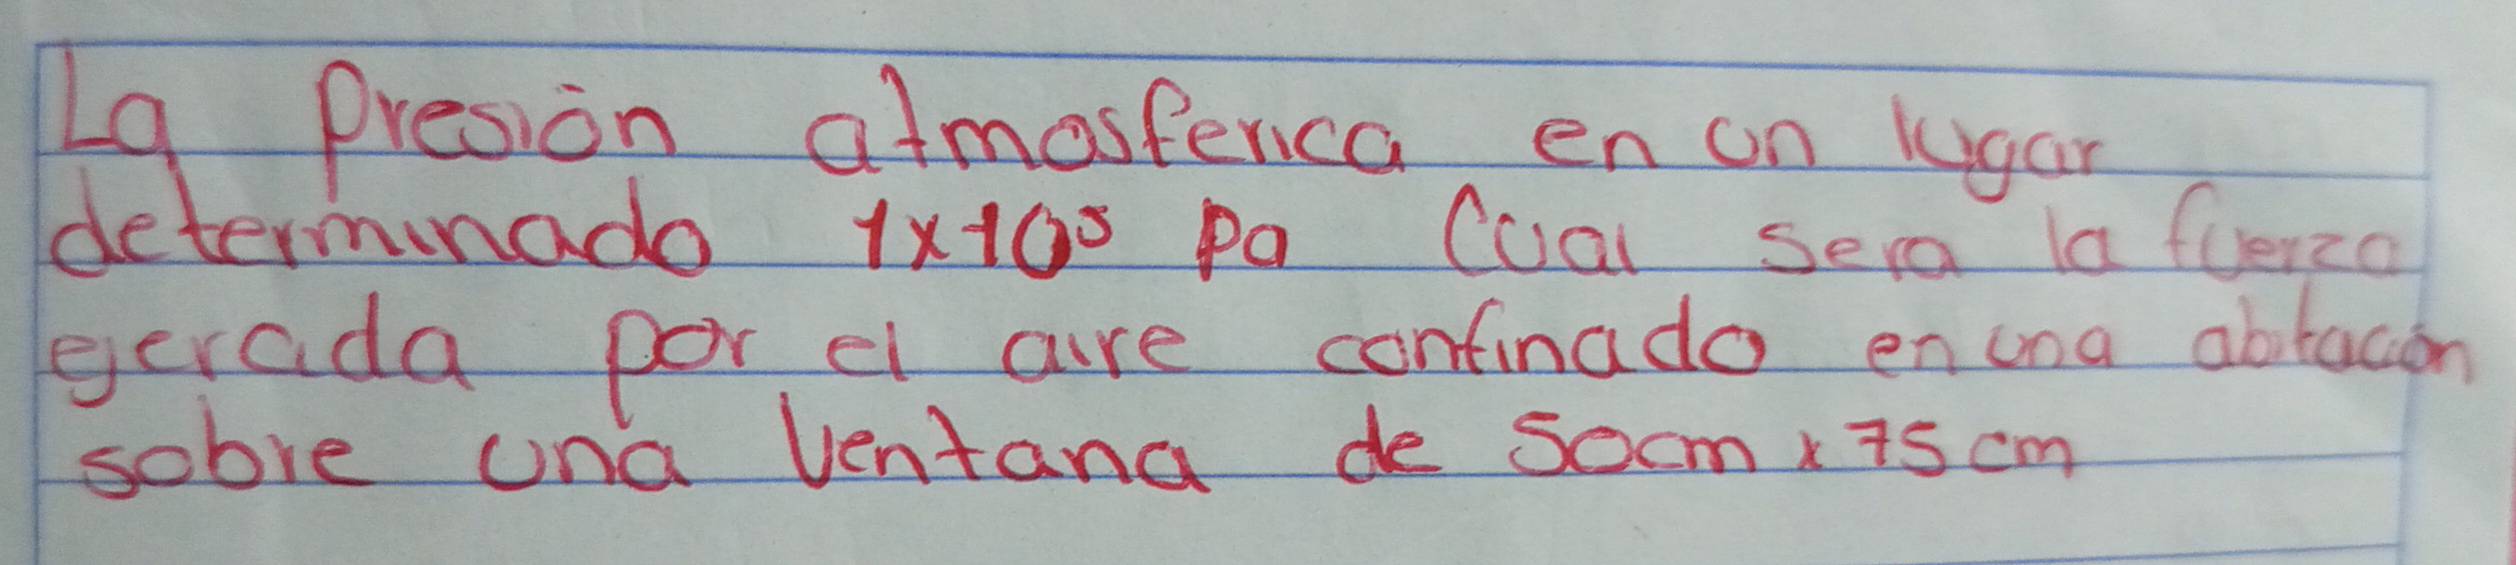 La Presión atmosferica en un lugar
determinado 1x10⁵ pa Cual sera la fuerza
ejerada por el aire confinado en una abitación
sobre una Ventana de 50cm x 75 cm